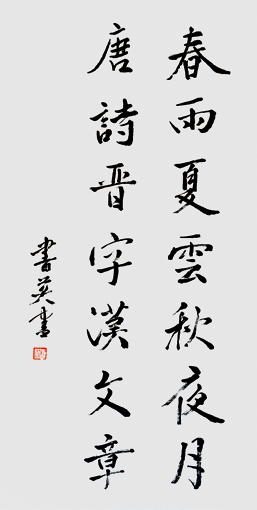 春雨夏雲秋夜月
唐詩晋字漢文章
書英書